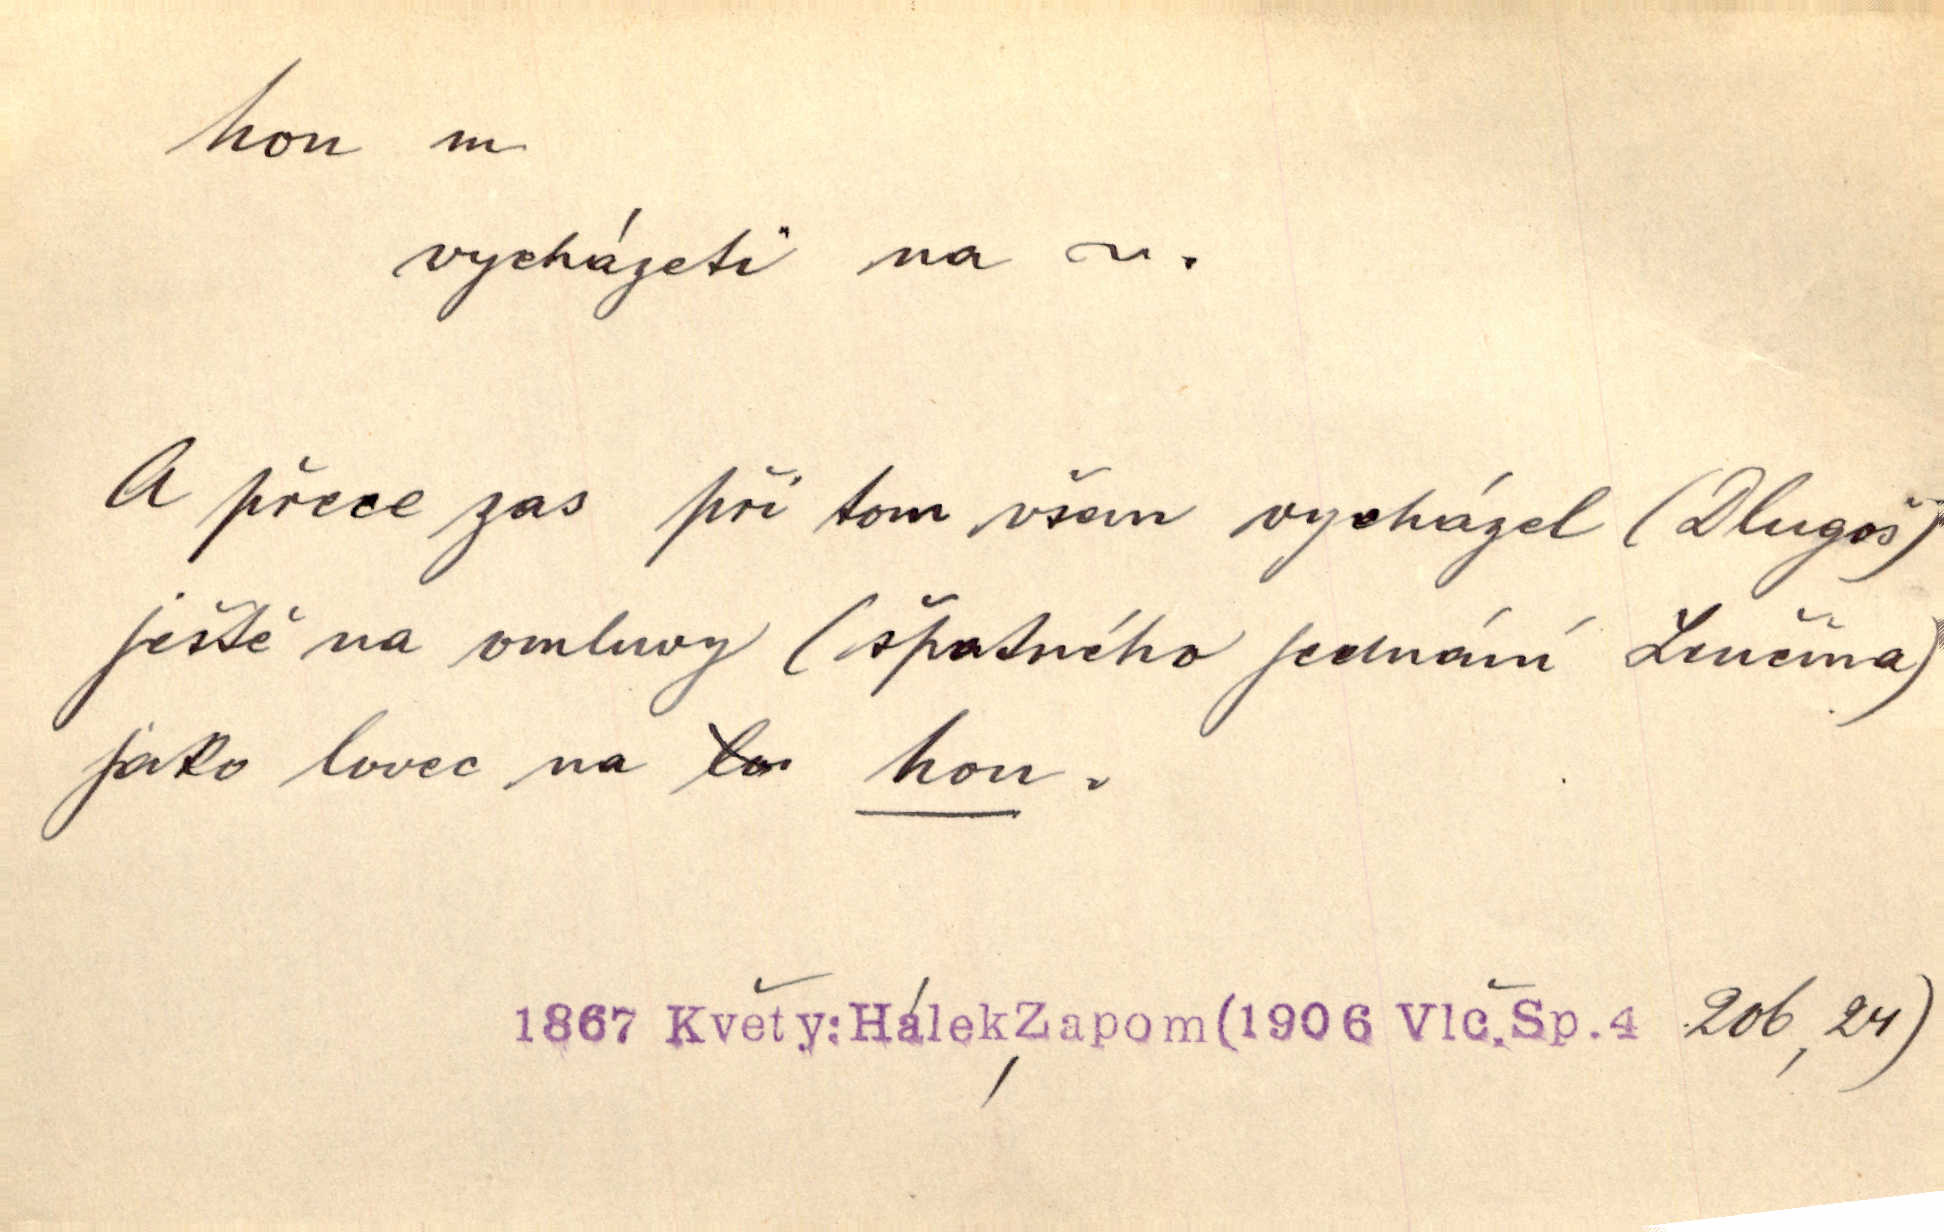 hon m
vycházeti na ~.
A přece zas při tom všem vycházel (Dlugoš)
ještě na omluvy (špatného jednání Lenčína)
jako lovec na lo hon.
1867 Květy: Hálek, Zapom (1906 Vlč. Sp. 4 206, 24)